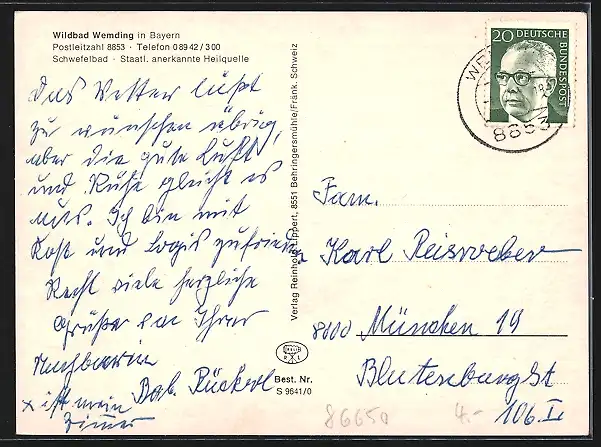 Wildbad Wemding in Bayern
Postleitzahl 8853 · Telefon 08942/300
Schwefelbad · Staatl. anerkannte Heilquelle
Das Wetter läßt
zu wünschen übrig,
aber die gute Luft
und Ruhe gleicht es
aus. Ich bin mit
Kost und Logis zufrieden
Recht viele herzliche
Grüße von Ihrer
Nachbarin
Bab. Rückerl
x ist mein
Zimmer
Verlag Reinhold Lippert, 8551 Behringersmühle/Fränk. Schweiz
Best. Nr.
S 9641/0
20 DEUTSCHE
BUNDESPOST
WE
8853
Fam.
Karl Reisweber
8000 München 19
Blutenburgst
106 II
86650
4.-